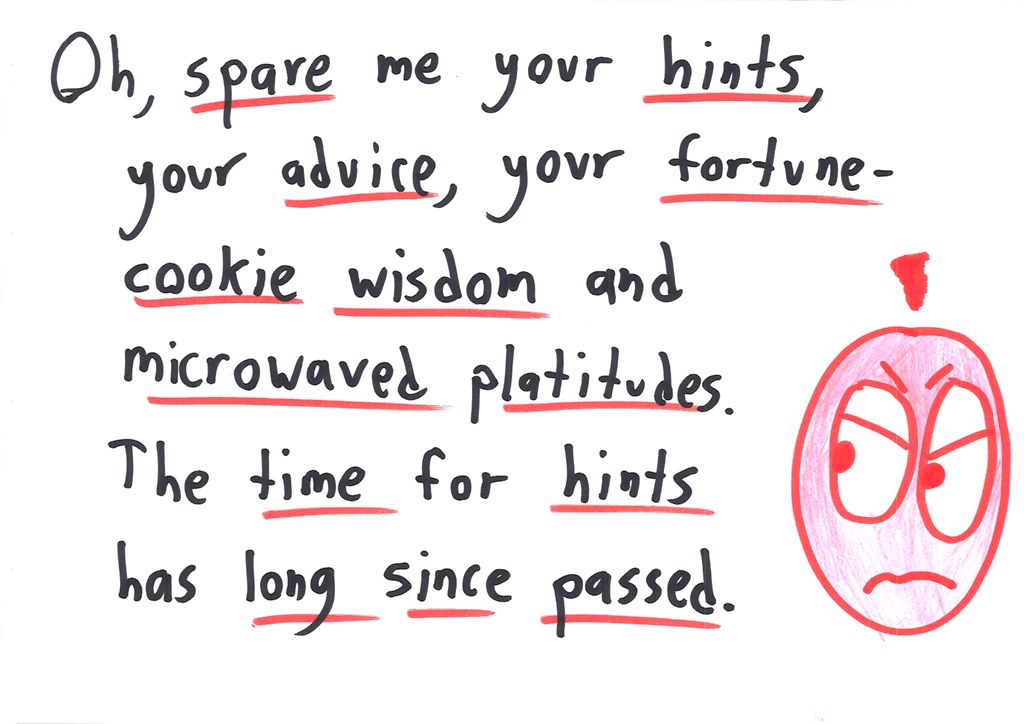 Oh, spare me your hints,
your advice, your fortune-
cookie wisdom and
microwaved platitudes.
The time for hints
has long since passed.